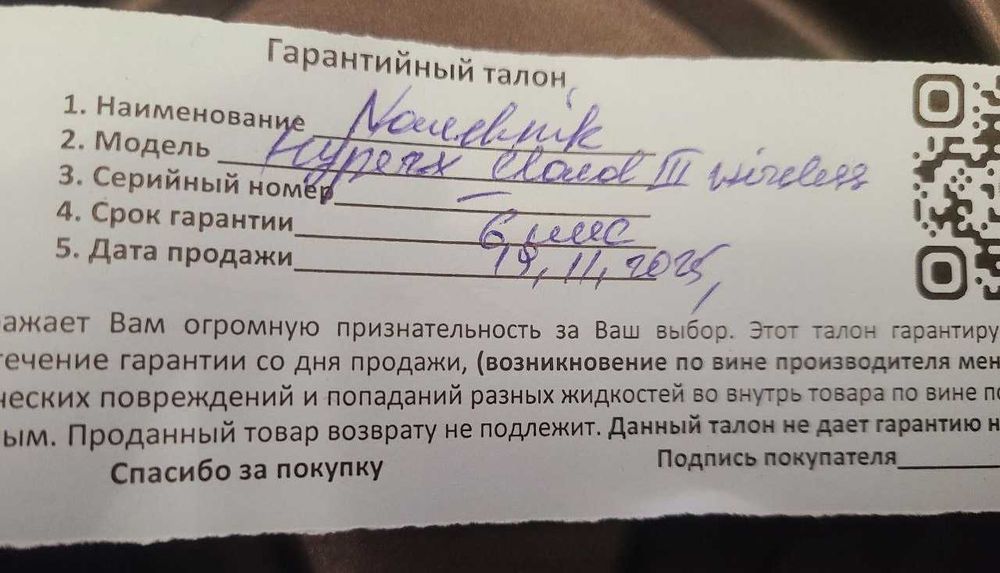 Гарантийный талон
1. Наименование
2. Модель HyperX Cloud III wireless
3. Серийный номер —
4. Срок гарантии 6 мес
5. Дата продажи 19,11,2025,
ажает Вам огромную признательность за Ваш выбор. Этот талон гарантиру
течение гарантии со дня продажи, (возникновение по вине производителя мен
ческих повреждений и попаданий разных жидкостей во внутрь товара по вине по
ым. Проданный товар возврату не подлежит. Данный талон не дает гарантию н
Спасибо за покупку Подпись покупателя